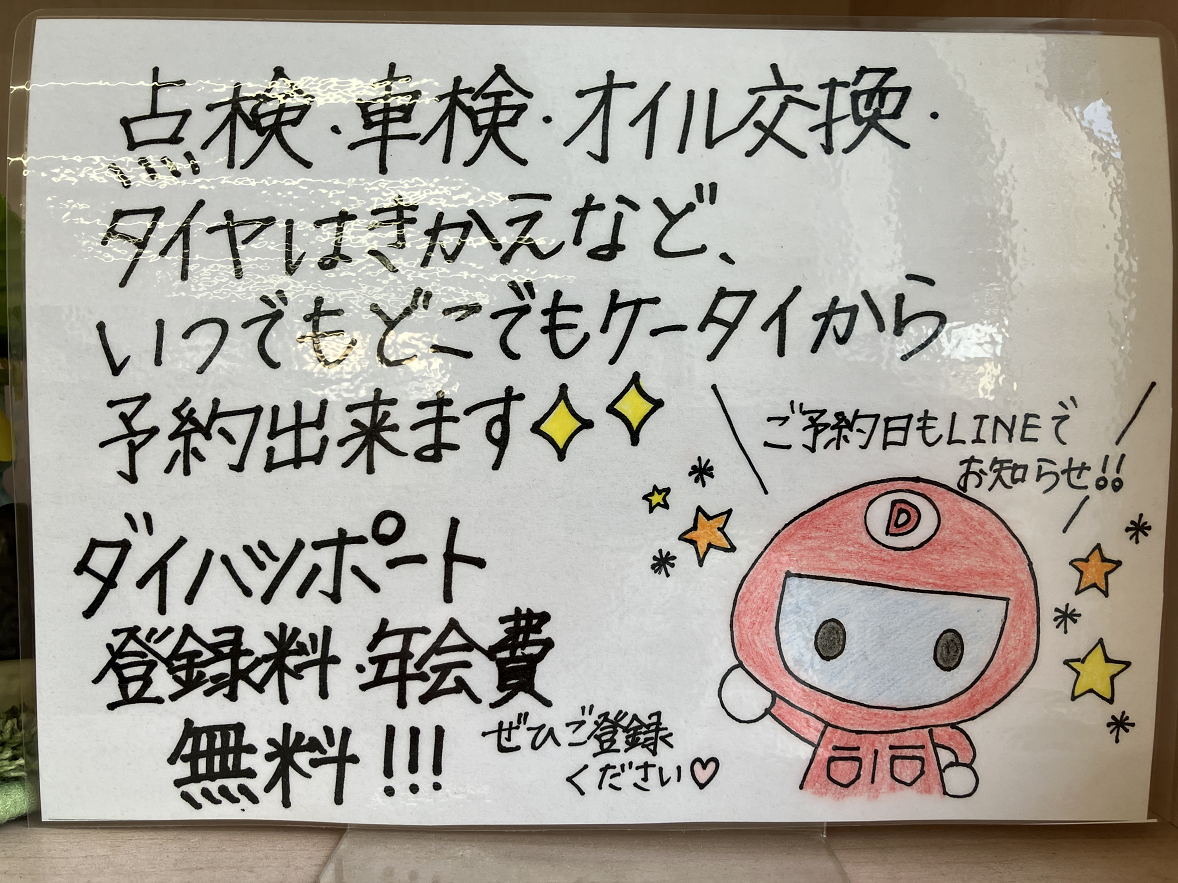 点検・車検・オイル交換・
タイヤはきかえなど、
いつでもどこでもケータイから
予約出来ます
ご予約日もLINEで
お知らせ!!
D
ダイハツポート
登録料・年会費
無料!!!
ぜひご登録
ください♡